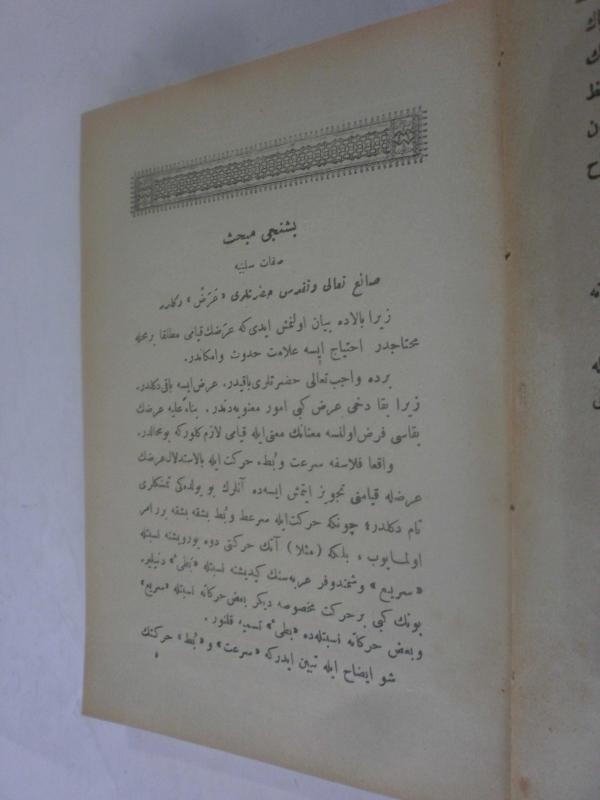 بشنجی مبحث
صفات سلبیه
صانع تعالی وتقدس حضرتلری «عَرَضْ» دكلدر
زیرا بالاده بیان اولنمش ایدی كه عرضك قیامی مطلقا بر محله
محتاجدر احتیاج ایسه علامت حدوث وامكاندر.
برده واجب تعالی حضرتلری باقیدر. عرض ایسه باقی دكلدر.
زیرا بقا دخی عرض كبی امور معنویه‌دندر. بناءً علیه عرضك
بقاسی فرض اولنسه معنانك معنی ایله قیامی لازم كلور كه بو محالدر.
واقعا فلاسفه سرعت و بُطء حركت ایله بالاستدلال عرضك
عرضله قیامنی تجویز ایتمش ایسه‌ده آنلرك بو یولده‌كی تمسكلری
تام دكلدر؛ چونكه حركت ایله سرعت و بُط بشقه بشقه برر امر
اولمایوب، بلكه (مثلا) آتك حركتی دوه یورویشنه نسبتله
«سریع» وشمندوفر عربه‌سنك كیدیشنه نسبتله «بطیء» دنیلیر.
بونك كبی بر حركت مخصوصه دیكر بعض حركاته نسبتله «سریع»
وبعض حركاته نسبتله‌ده «بطیء» تسمیه قلنور.
شو ایضاح ایله تبین ایدر كه «سرعت» و «بُط» حركتك